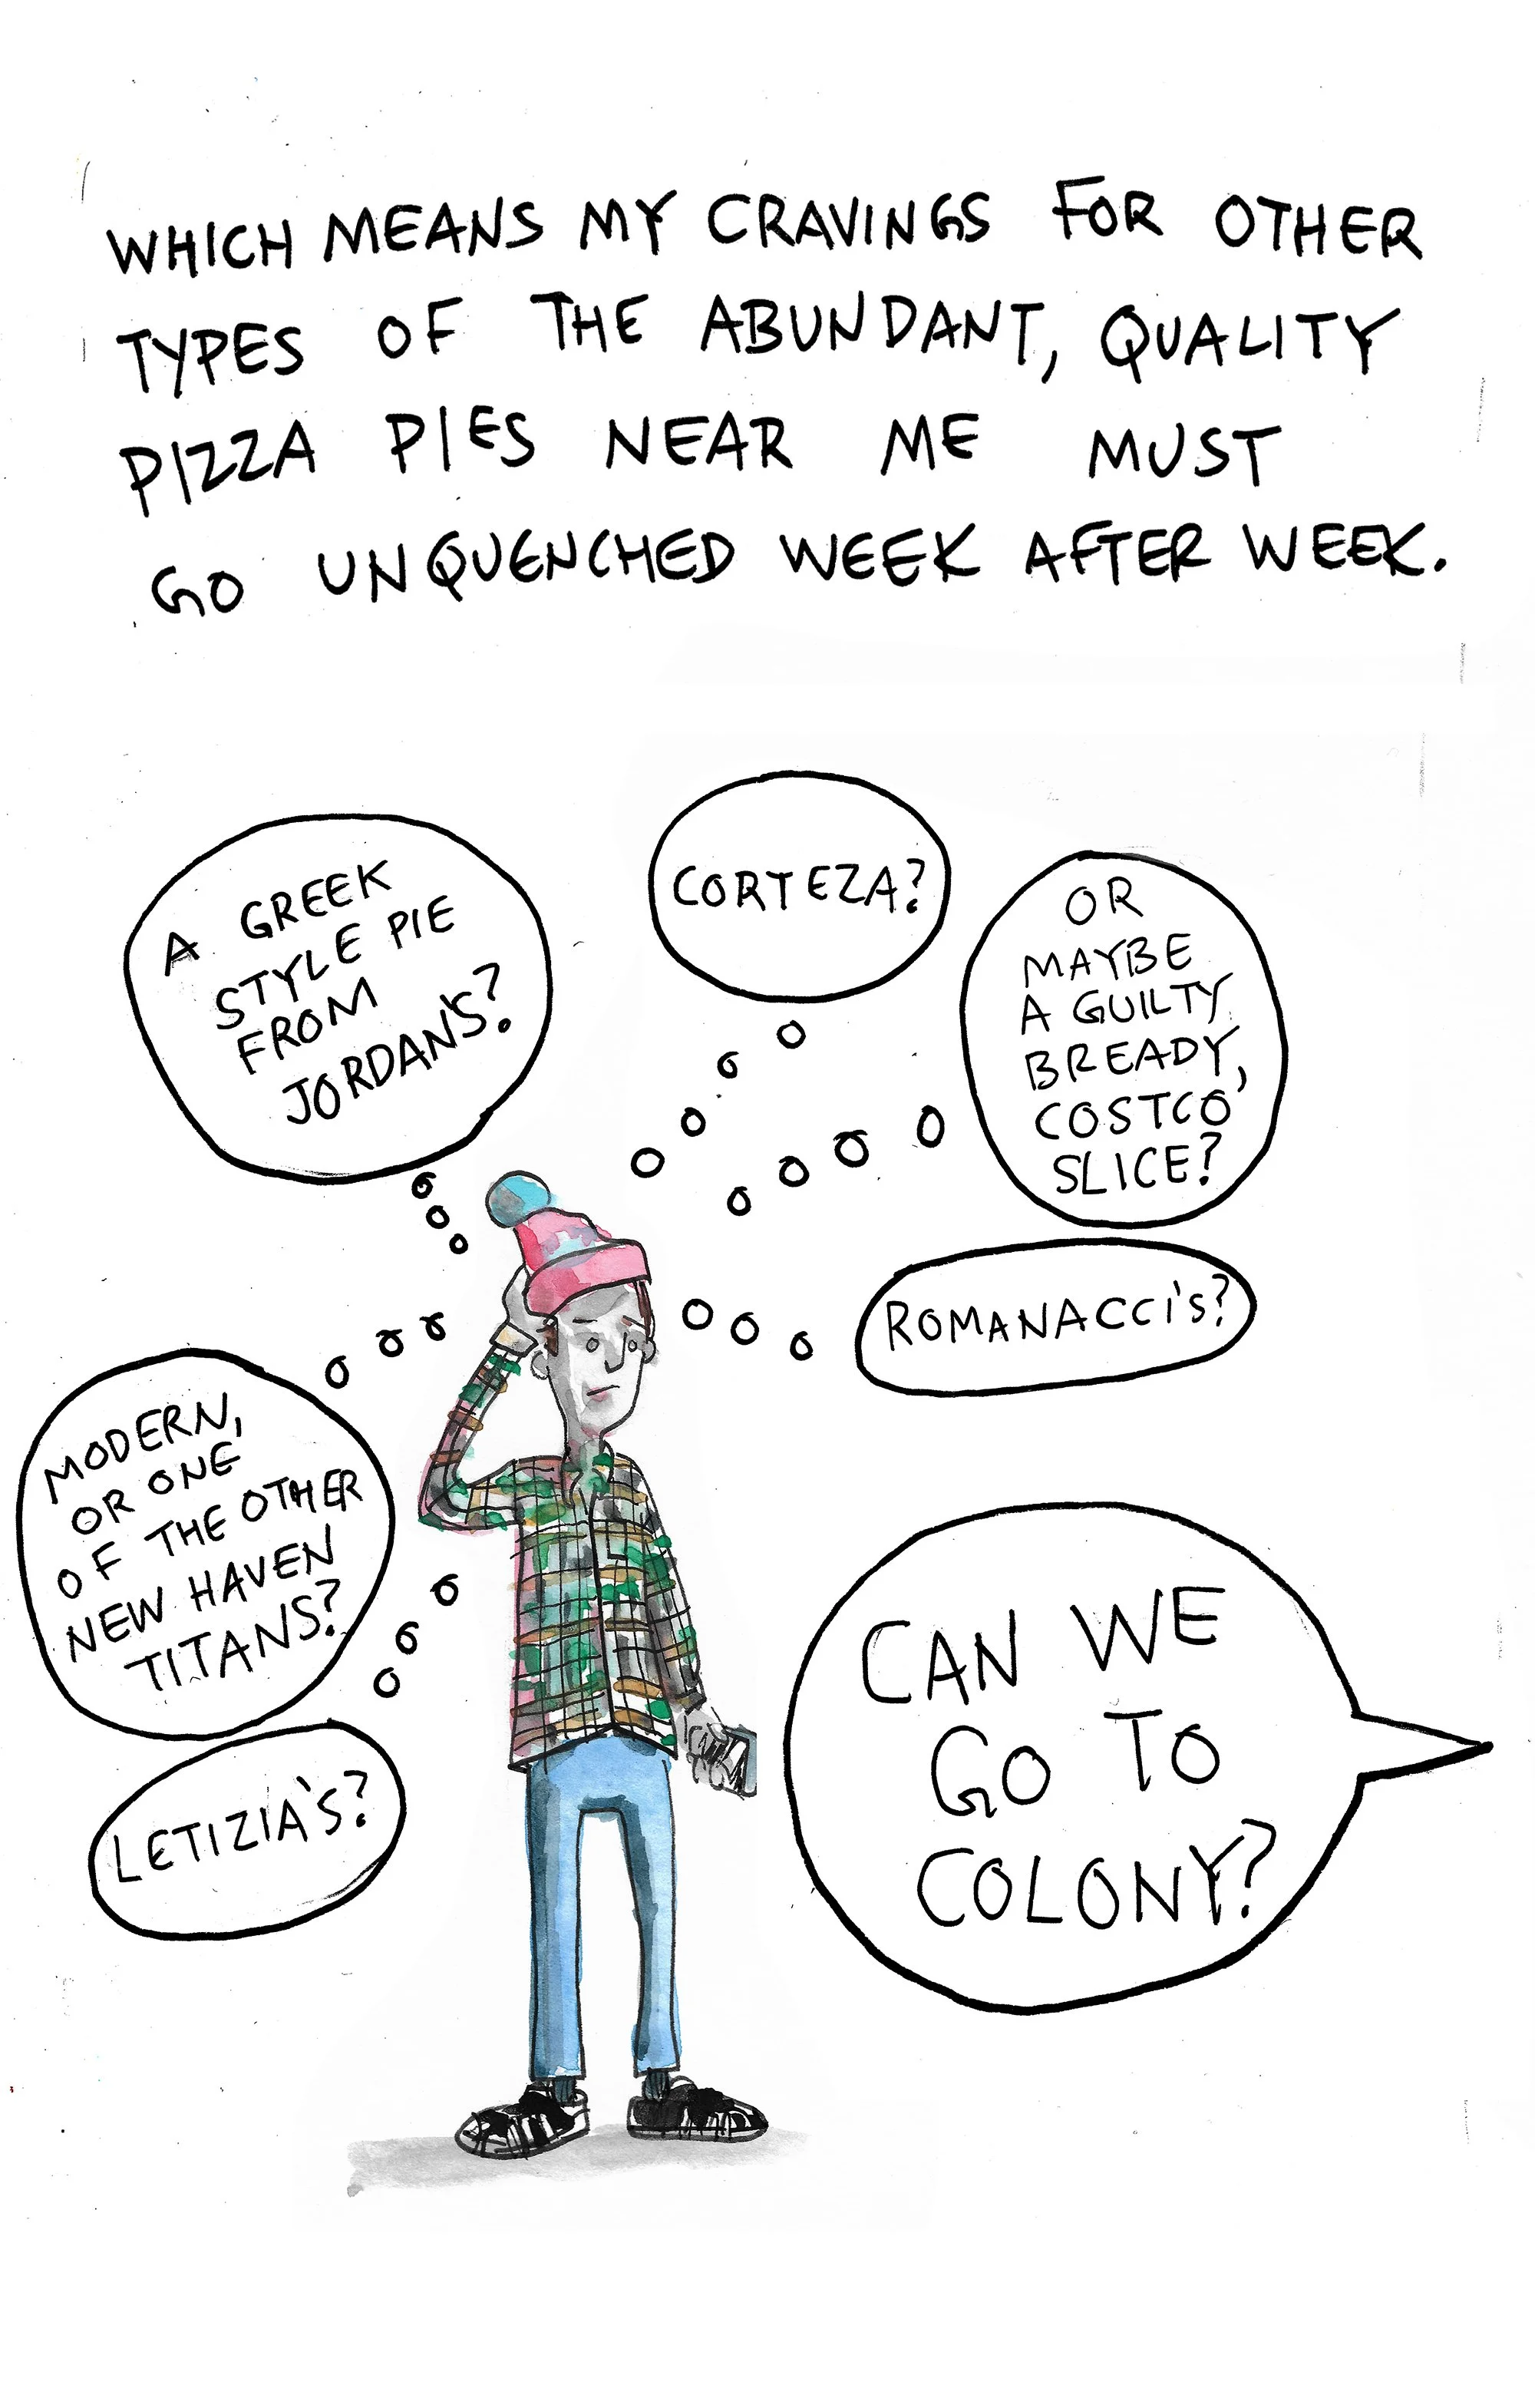 WHICH MEANS MY CRAVINGS FOR OTHER
TYPES OF THE ABUNDANT, QUALITY
PIZZA PIES NEAR ME MUST
GO UNQUENCHED WEEK AFTER WEEK.
A GREEK
STYLE PIE
FROM
JORDAN'S?
CORTEZA?
OR
MAYBE
A GUILTY
BREADY,
COSTCO
SLICE?
ROMANACCI'S?
MODERN,
OR ONE
OF THE OTHER
NEW HAVEN
TITANS?
LETIZIA'S?
CAN WE
GO TO
COLONY?